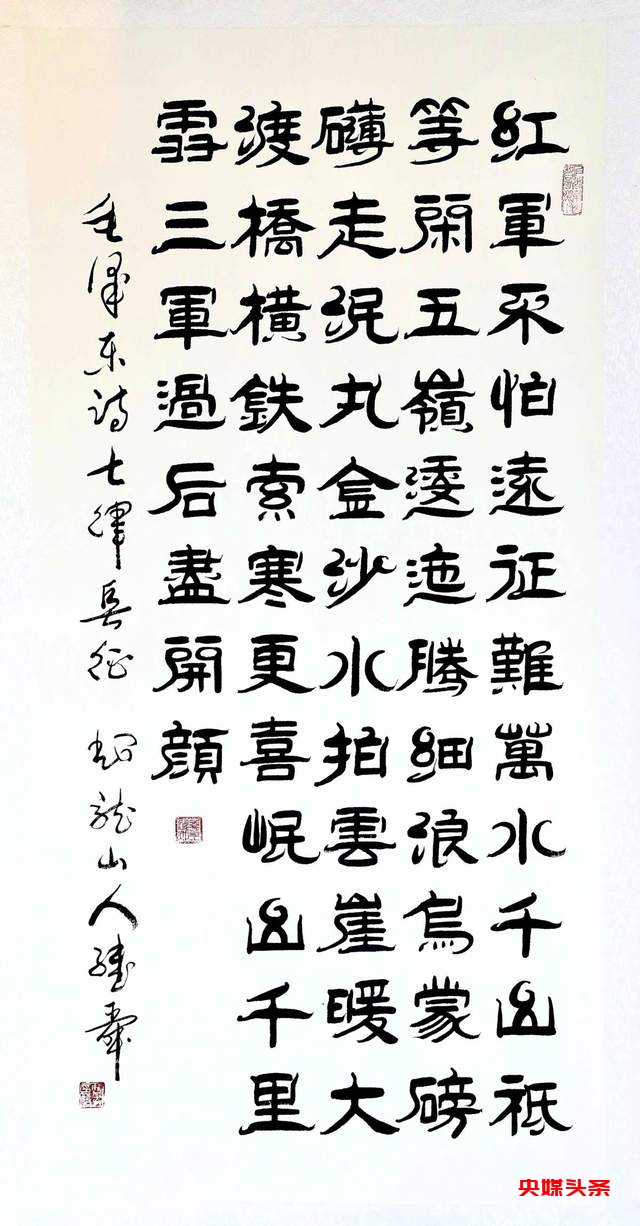 紅軍不怕遠征難萬水千山祗
等閑五嶺逶迤騰細浪烏蒙磅
礴走泥丸金沙水拍雲崖暖大
渡橋橫鉄索寒更喜岷山千里
雪三軍過后盡開顔
毛澤東诗七律長征 龍山人
央媒头条